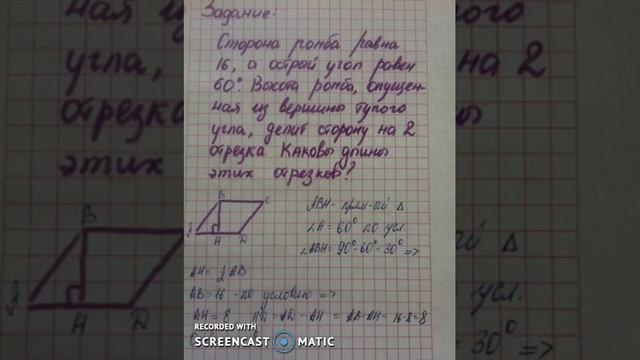 Задание:
Сторона ромба равна
16, а острый угол равен
60°. Высота ромба, опущен-
ная из вершины тупого
угла, делит сторону на 2
отрезка. Каковы длины
этих отрезков?
B C
A H D
ABH - прям-ый Δ
∠A = 60° по усл.
∠ABH = 90°-60°=30° =>
AH = 1/2 AB
AB = 16 - по условию =>
AH = 8 HD = AD - AH = AB-AH= 16-8=8
RECORDED WITH
SCREENCAST MATIC